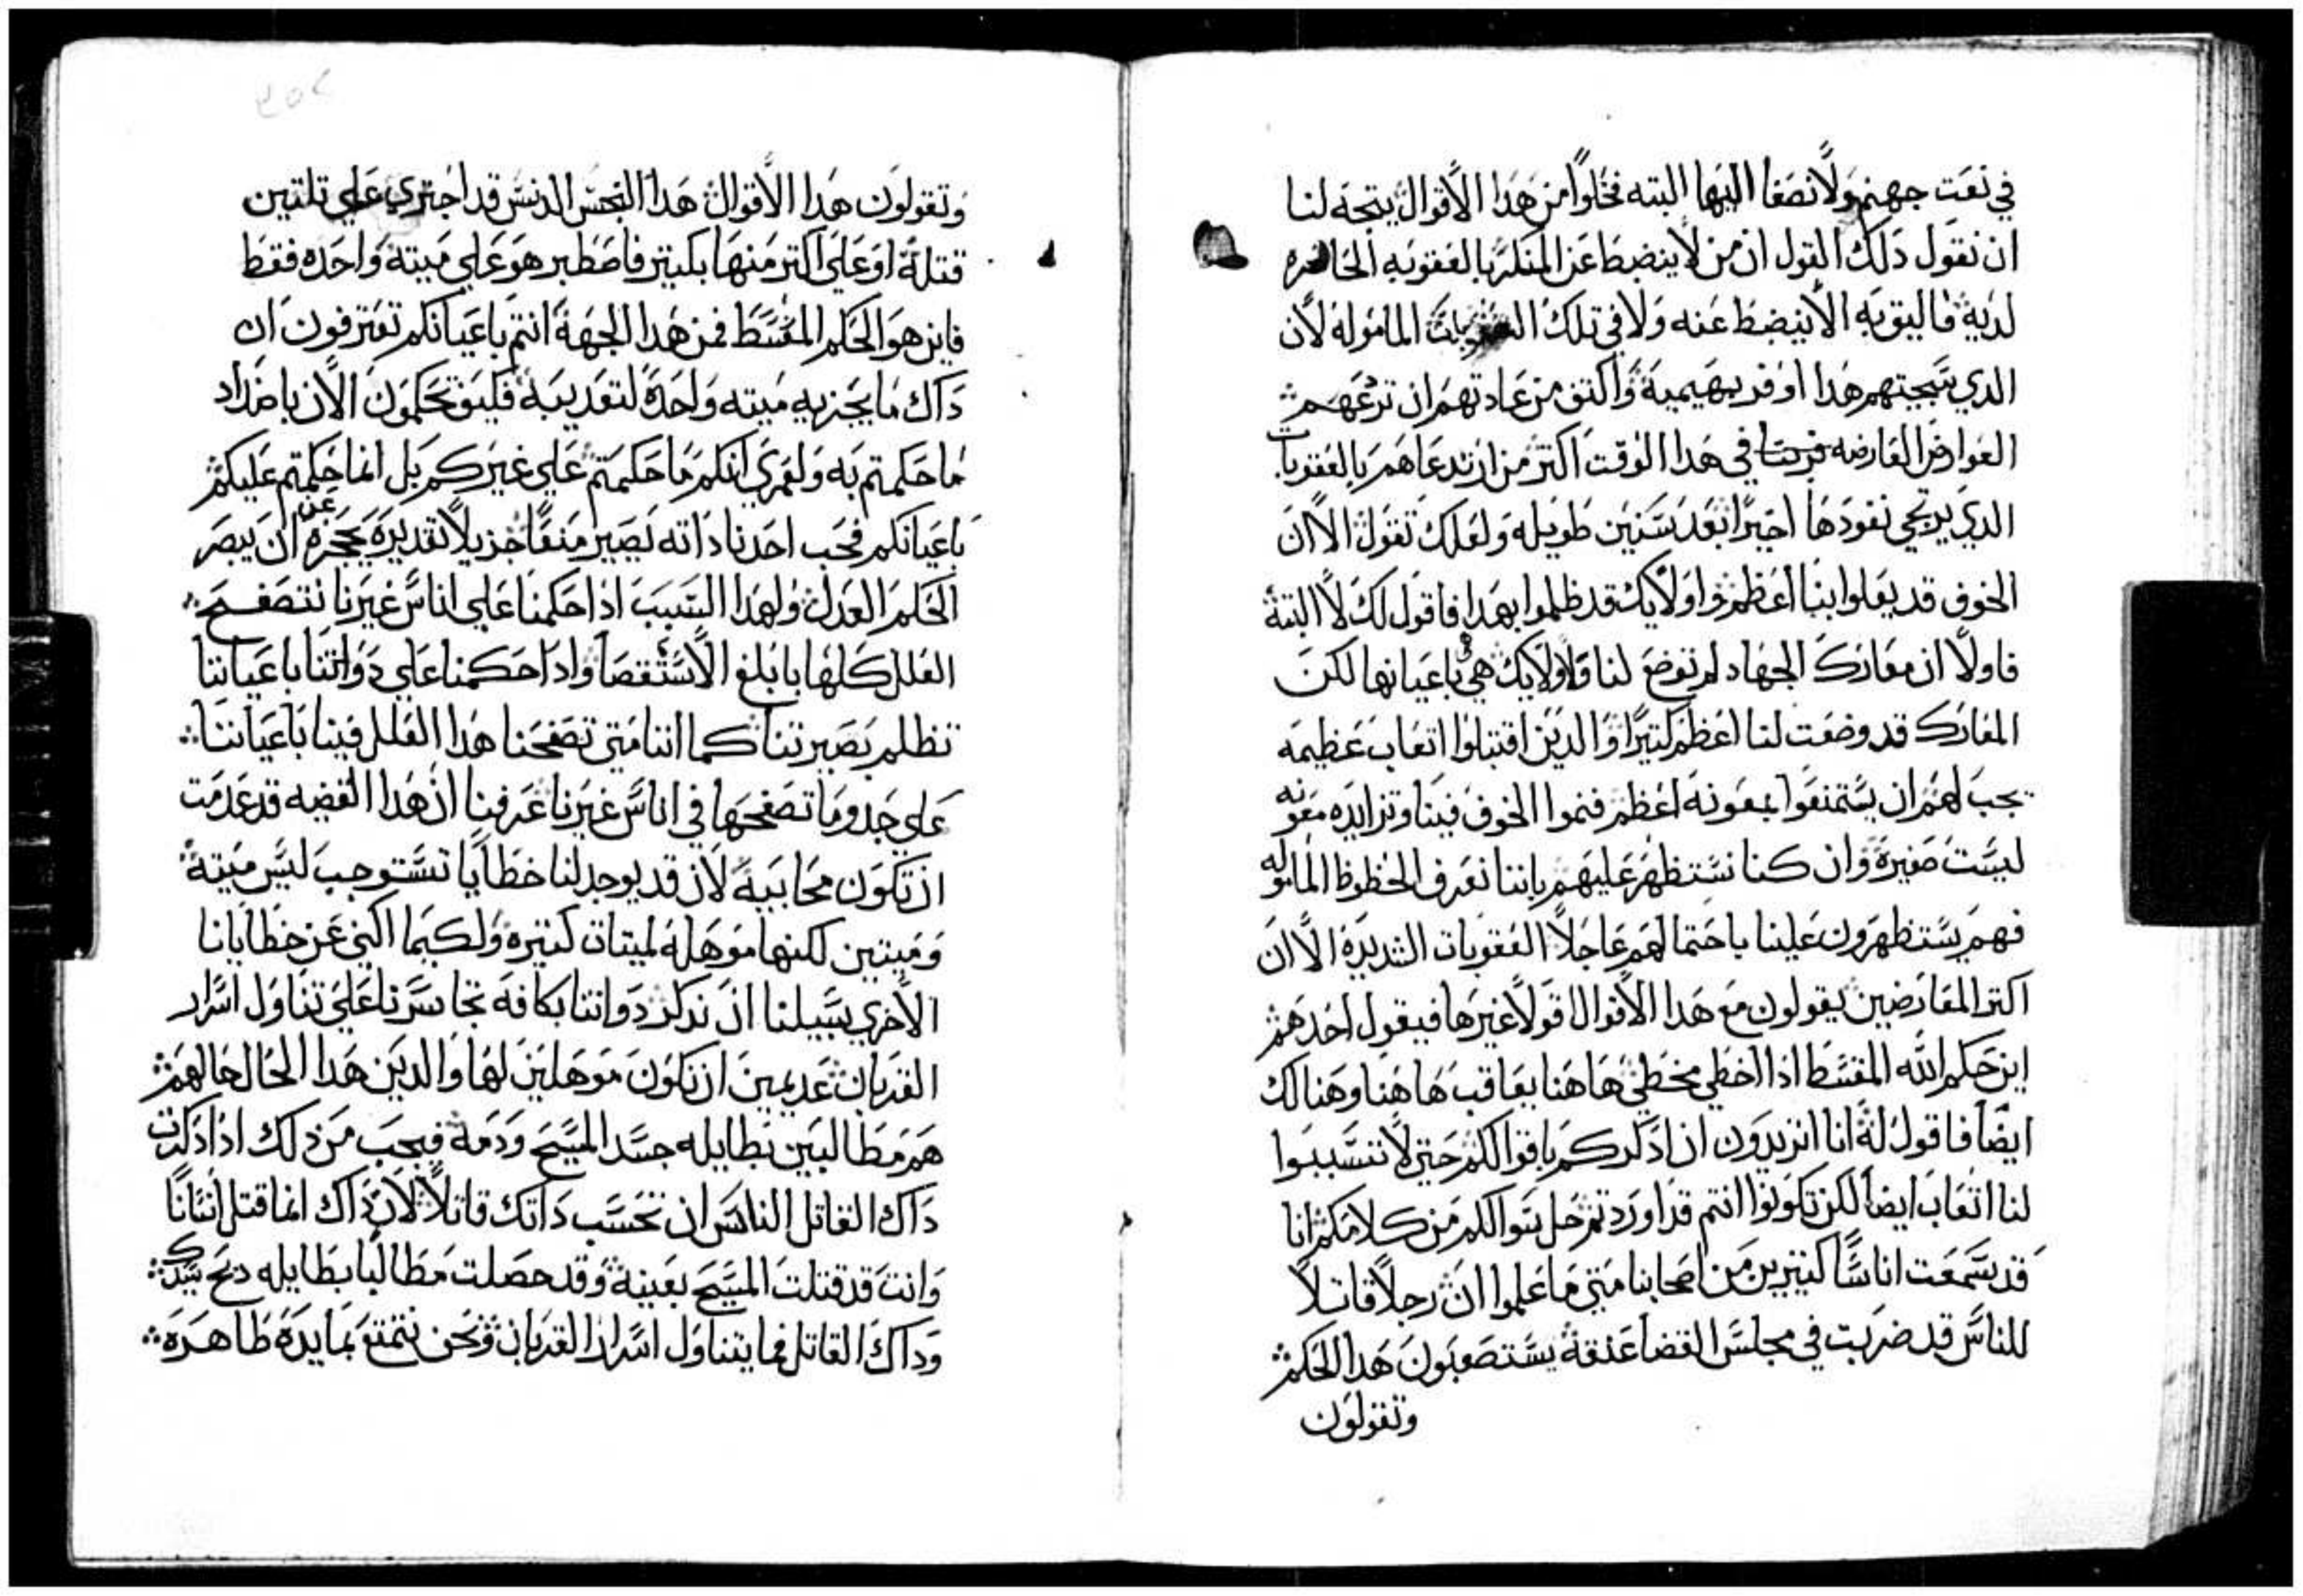 في نعت جهنم ولا نصغا اليها البته فخلوا من هدا الاقوال يتجه لنا
ان نقول دلك القول ان من لا ينضبط عن المنكر بالعقوبه الحاضره
لديه فاليق به الا ينضبط عنه ولا في تلك العقوبات المامولة لان
الدي سجيتهم هدا اوفر بهيمية واكتق من عادتهم ان تردعهم
العوارض العارضه في هدا الوقت اكتر من ارتدعاهم بالعقوبات
الدي يرتجي نفودها اخيرا بعد سنين طويله ولعلك تقول الا ان
الخوف قد يعلوا بنا اعظم واولايك قد ظلموا بهدا فاقول لك لا البتة
فاولا ان معارك الجهاد لم توضع لنا ولاولايك هي باعيانها لكن
المعارك قد وضعت لنا اعظم كتيرا والدين اقتبلوا اتعاب عظيمه
يجب لهم ان يستمتعوا بمعونه اعظم فنموا الخوف فينا وتزايده معونه
ليست صغيرة وان كنا نستظهر عليهم باننا نعرف الحظوظ الماموله
فهم يستظهرون علينا باحتمالهم عاجلا العقوبات الشديدة الا ان
اكتر المعارضين يقولون مع هدا الاقوال اقولا غيرها فيقول احدهم
اين حكم الله المقسط اذا اخطي مخطي هاهنا يعاقب هاهنا وهنالك
ايضا فاقول له انا اتريدون ان ادكركم باقوالكم حتي لا تتسببوا
لنا اتعاب ايضا لكن تكونوا انتم قد اوردتم حل سوالكم من كلامكم انا
قد سمعت اناسا كتيرين من اصحابنا متي ما علموا ان رجلا قاتلا
للناس قد ضربت في مجلس القضا عنقة يستصعبون هدا الحكم
وتقولون
وتقولون هدا الاقوال هدا النجس الدنس قد اجتري علي تلتين
قتلة او علي اكتر منها بكتير فاصطبر هو علي ميتة واحده فقط
فاين هو الحكم المقسط فمن هدا الجهة انتم باعيانكم تعترفون ان
داك ما يجزيه ميته واحدة لتعديبة فكيف تحكمون الان باضداد
ما حكمتم به ولعمري انكم ما حكمتم علي غيركم بل انما حكمتم عليكم
باعيانكم فحب احدنا داته يصير منعا جزيلا تقديره يحجزه عن ان يبصر
الحكم العدل ولهدا السبب اذا حكمنا علي اناس غيرنا نتصفح
العلل كلها بابلغ الاستقصا واذا حكمنا علي دواتنا باعياننا
تظلم بصيرتنا كما اننا متي تصفحنا هدا العلل فينا باعياننا
علي حدو ما تصفحها في اناس غيرنا عرفنا ان هدا القضيه قد عدمت
ان تكون محابية لان قد يوجد لنا خطايا تستوجب ليس ميتة
وميتتين لكنها موهلة لميتات كتيرة ولكيما اكني عن خطايانا
الاخري سبيلنا ان ندكر دواتنا بكافة تجاسرنا علي تناول اسرار
القربان عديمين ان نكون موهلين لها والدين هدا الحال حالهم
هم مطالبين بطايله جسد المسيح ودمه فيجب من ذلك اذا ذكرت
داك القاتل الناس ان تحسب داتك قاتلا لان داك انما قتل انسانا
وانت قد قتلت المسيح بعينة وقد حصلت مطالبا بطايله دبح سيدك
وداك القاتل فما يتناول اسرار القربان ونحن نتمتع بمايدة طاهرة